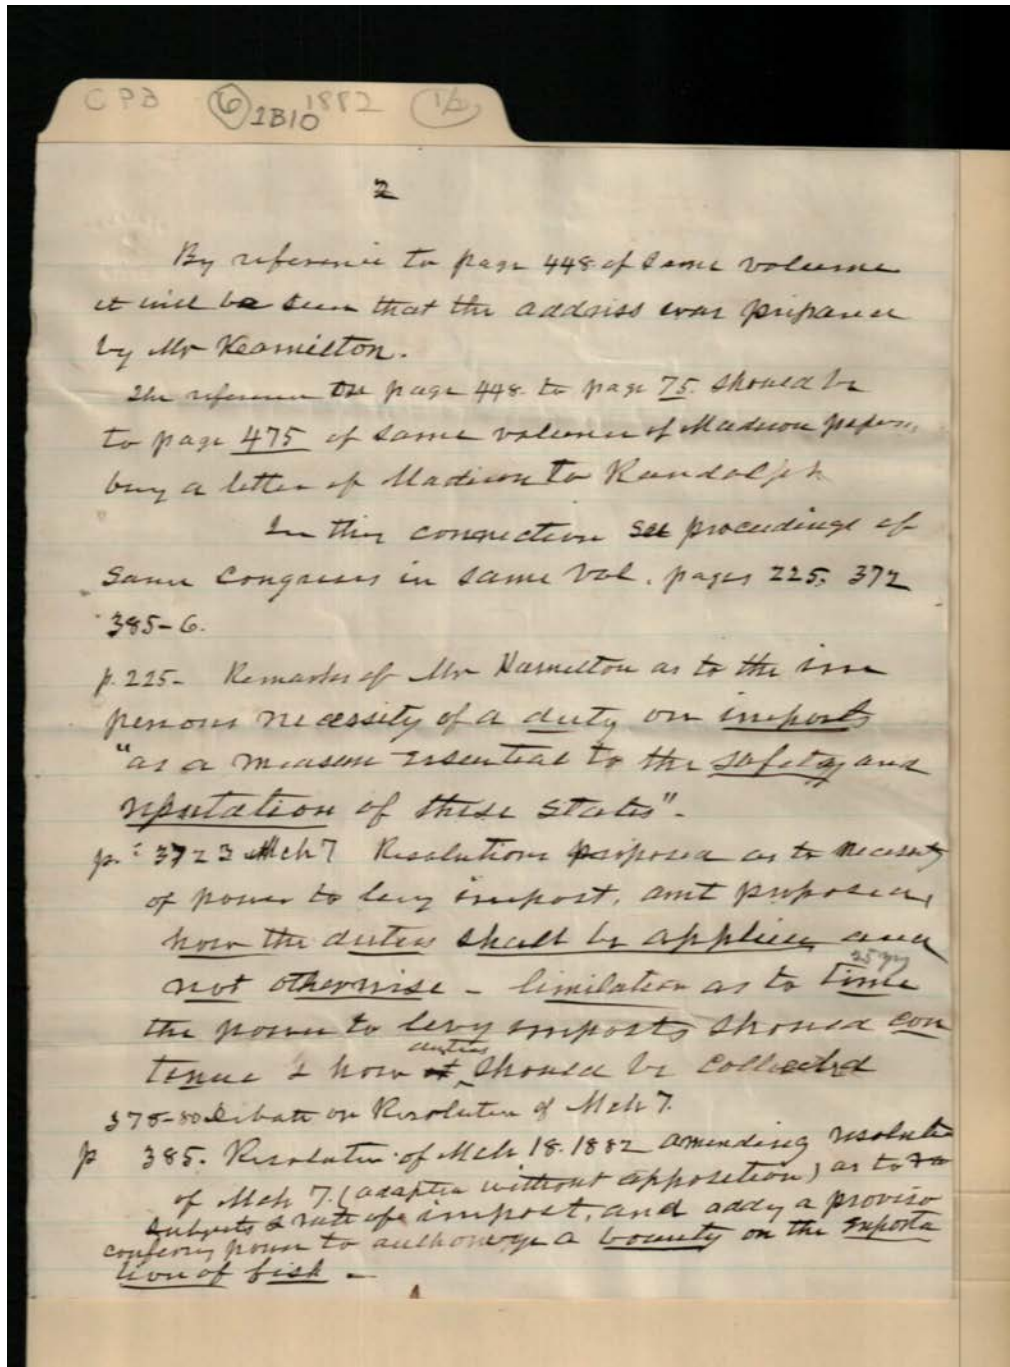 CPB 6 1882 1/2
2B10
2
By reference to page 448 of same volume
it will be seen that the address was prepared
by Mr Hamilton.
The reference on page 448 to page 75 should be
to page 475 of same volume of Madison papers,
being a letter of Madison to Randolph
In this connection see proceedings of
same Congress in same vol. pages 225, 372
385-6.
p. 225- Remarks of Mr Hamilton as to the im
perious necessity of a duty on imports
"as a measure essential to the safety and
reputation of these states".
p. 372 3 Mch 7 Resolutions proposed as to necessity
of power to levy impost, amt proposed,
how the duties shall be applied and
25 yrs
not otherwise - limitation as to time
the power to levy imposts should con
duties
tinue & how should be collected
378-80 Debate on Resolution of Mch 7.
p 385. Resolution of Mch 18. 1882 amending resolution
of Mch 7. (adopted without opposition) as to
subjects & rate of impost, and adding a proviso
conferring power to authorize a bounty on the exporta
tion of fish -